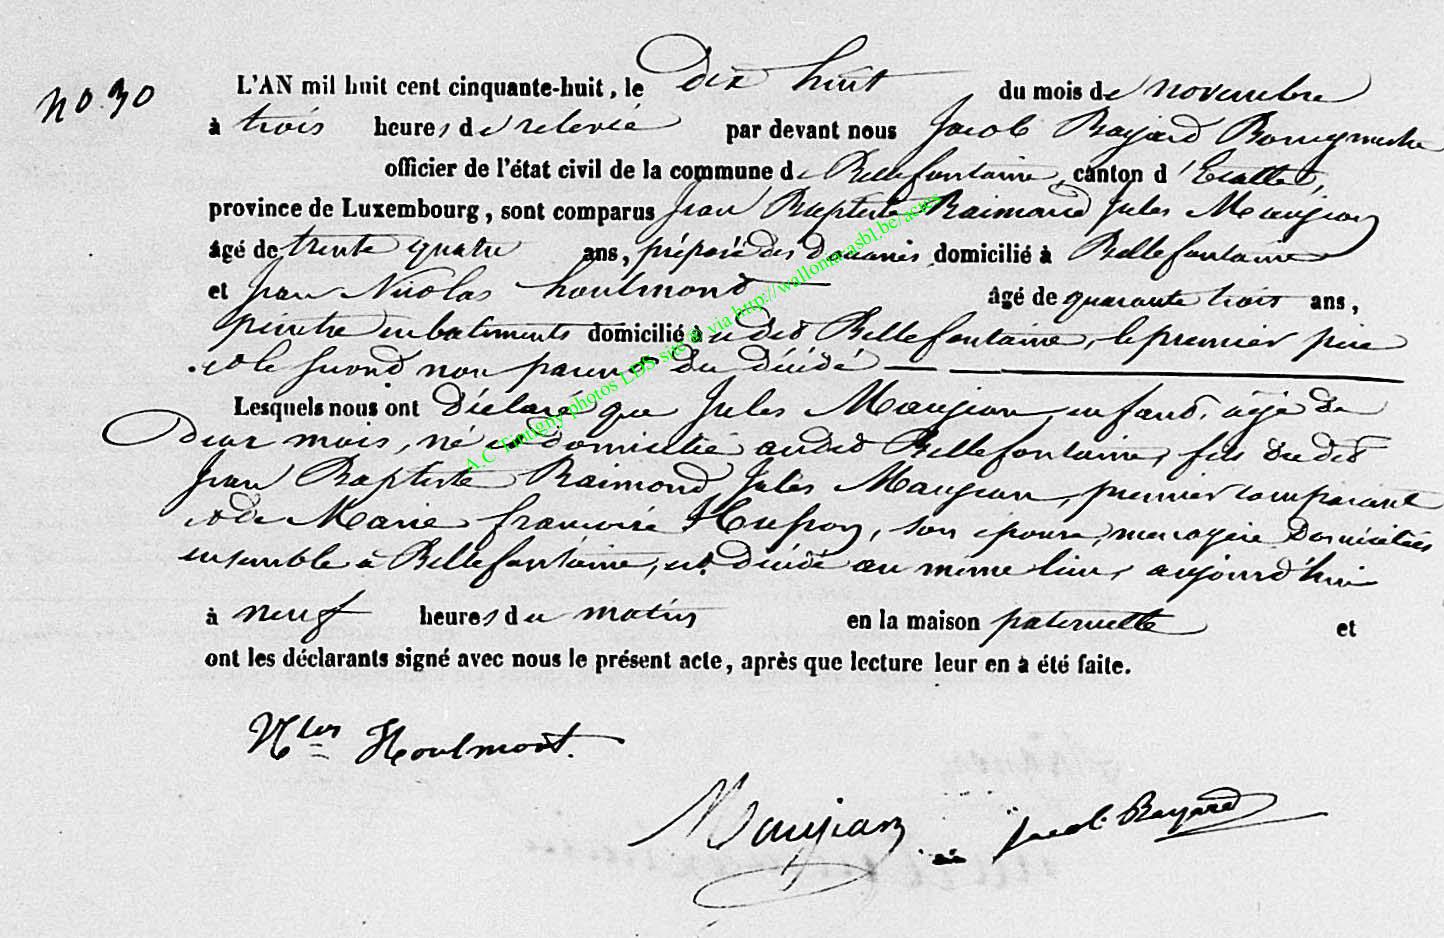 No 30
L'AN mil huit cent cinquante-huit, le dix huit du mois de novembre
à trois heures de relevée par devant nous Jacob Bayard Bourgmestre
officier de l'état civil de la commune de Bellefontaine, canton d'Etalle,
province de Luxembourg, sont comparus Jean Baptiste Raimond Jules Maugian
âgé de trente quatre ans, préposé des douanes domicilié à Bellefontaine
et Jean Nicolas houlmond âgé de quarante trois ans,
peintre en batiments domicilié à udit Bellefontaine, le premier père
et le second non parent du décédé
Lesquels nous ont déclaré que Jules Maugian, enfant, âgé de
deux mois, né et domicilié audit Bellefontaine, fils dudit
Jean Baptiste Raimond Jules Maugian, premier comparant
et de Marie françoise Hupon, son épouse, menagère domiciliés
ensemble à Bellefontaine, est décédé au même lieu, aujourd'hui
à neuf heures du matin en la maison paternelle et
ont les déclarants signé avec nous le présent acte, après que lecture leur en à été faite.
Nlas Houlmont.
Maugian Jacob Bayard
A.C Tintigny photos LDS site via http://wallonica.asbl.be/actes